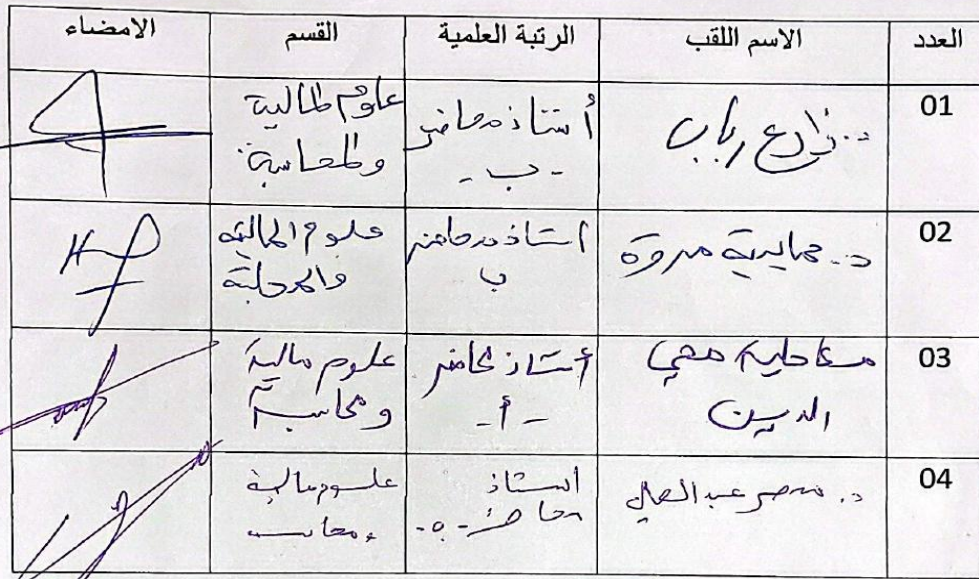 العدد الاسم اللقب الرتبة العلمية القسم الامضاء
01 د. زارع رباب أستاذ محاضر علوم المالية
- ب - والمحاسبة
02 د. حمايدية مروة أستاذ محاضر علوم المالية
ب والمحاسبة
03 محي أستاذ محاضر علوم مالية
الدين - أ - ومحاسبة
04 د. عبد العالي استاذ علوم مالية
محاضر محاسبة